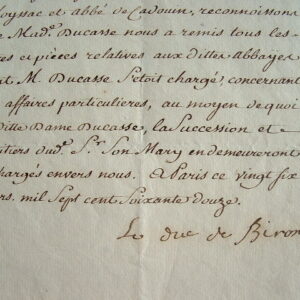 loyssac et abbé de Cadouin, reconnoissons
e Mad.e Ducasse nous a remis tous les
es et pièces relatives aux dittes Abbayes
nt M. Ducasse S'etoit chargé, concernant
affaires particulieres, au moyen de quoi
ditte Dame Ducasse, la Succession et
itiers dud. S.r Son Mary en demeureront
chargés envers nous. a Paris ce vingt six
rs. mil Sept cent Soixante douze.
Le duc de Biron